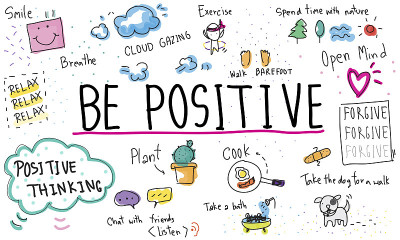 Smile
Exercise
Spend time with nature
CLOUD GAZING
Open Mind
Breathe
Walk BAREFOOT
RELAX
RELAX
RELAX
BE POSITIVE
FORGIVE
FORGIVE
FORGIVE
POSITIVE
THINKING
Plant
COOK
Take the dog for a walk
Chat with friends
<listen>
Take a bath